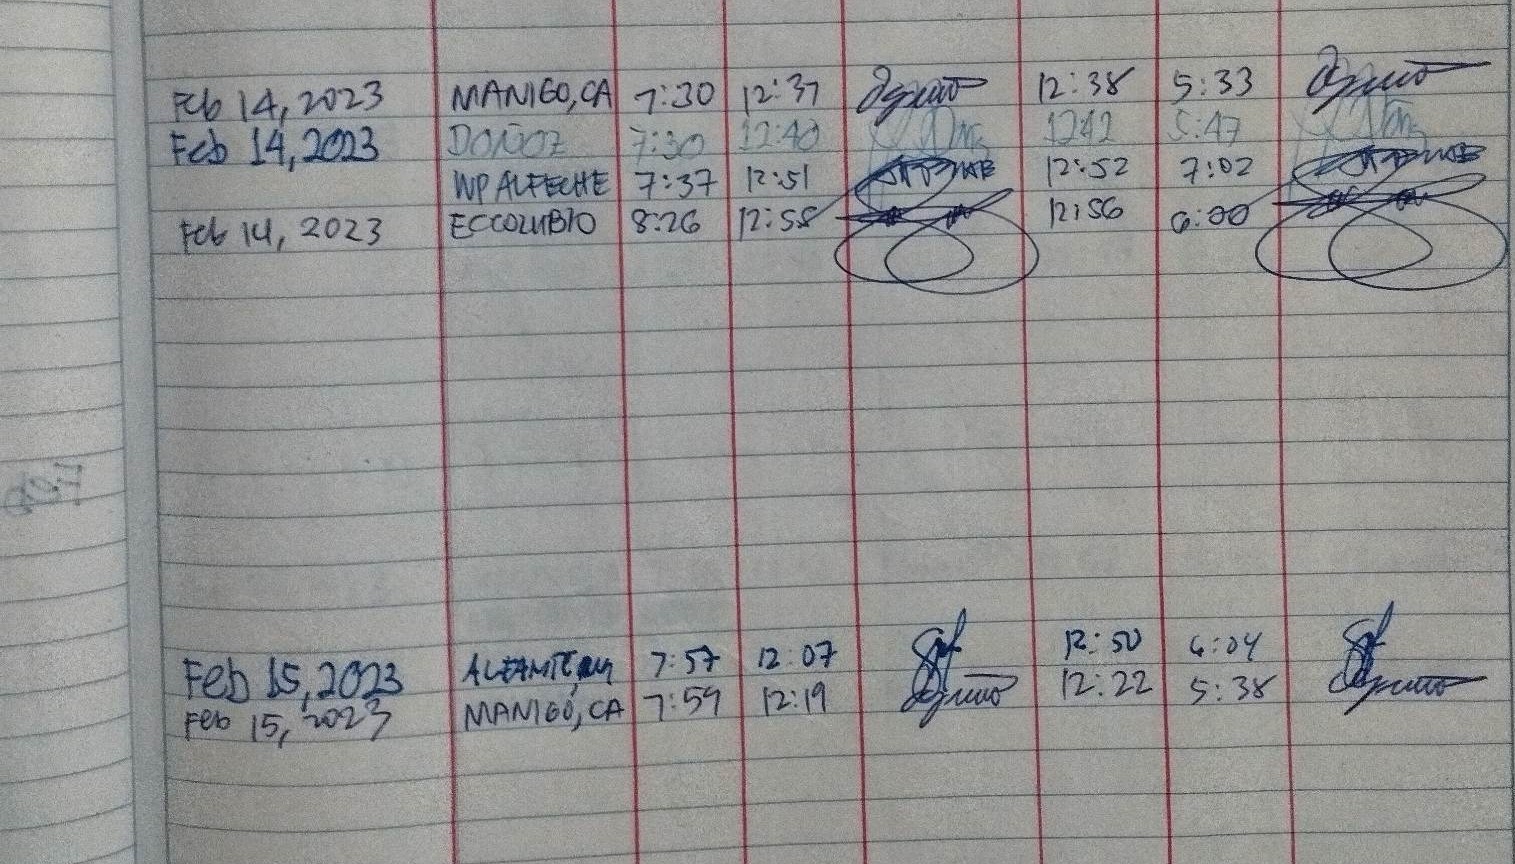 Feb 14, 2023 MANIGO, CA 7:30 12:37 12:38 5:33
Feb 14, 2023 DOÑOZ 7:30 12:40 1242 5:47
WP ALFECHE 7:37 12:51 12:52 7:02
Feb 14, 2023 ECCOLUBIO 8:26 12:55 12:56 6:00
Feb 15, 2023 7:57 12:07 12:50 6:04
Feb 15, 2023 MANIGO, CA 7:59 12:19 12:22 5:38